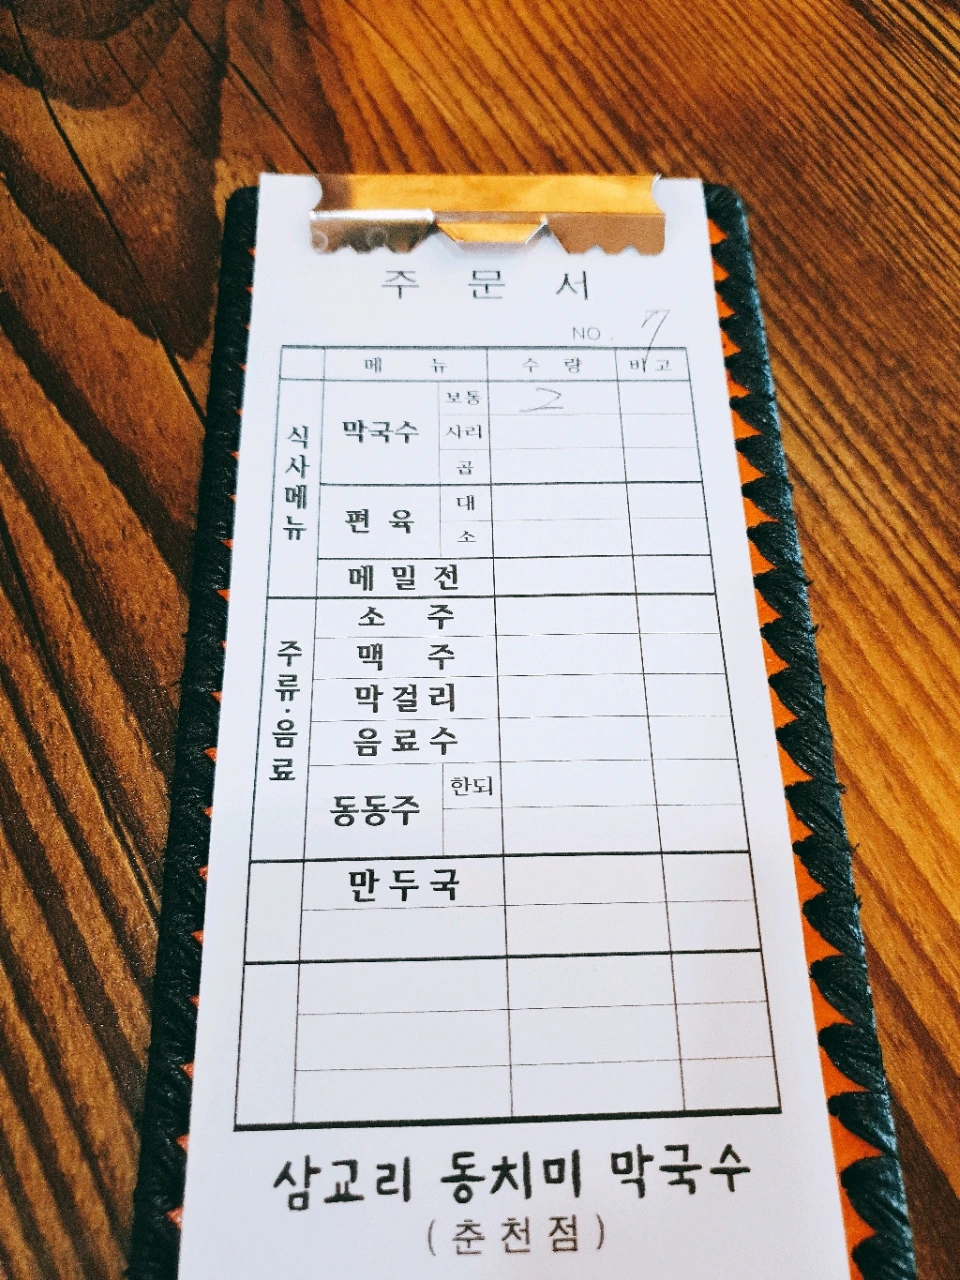 주 문 서
NO. 7
메 뉴 수 량 비 고
식사메뉴
막국수 보통 2
사리
곱
편 육 대
소
메 밀 전
주류·음료
소 주
맥 주
막 걸 리
음 료 수
동동주 한되
만 두 국
삼교리 동치미 막국수
( 춘 천 점 )